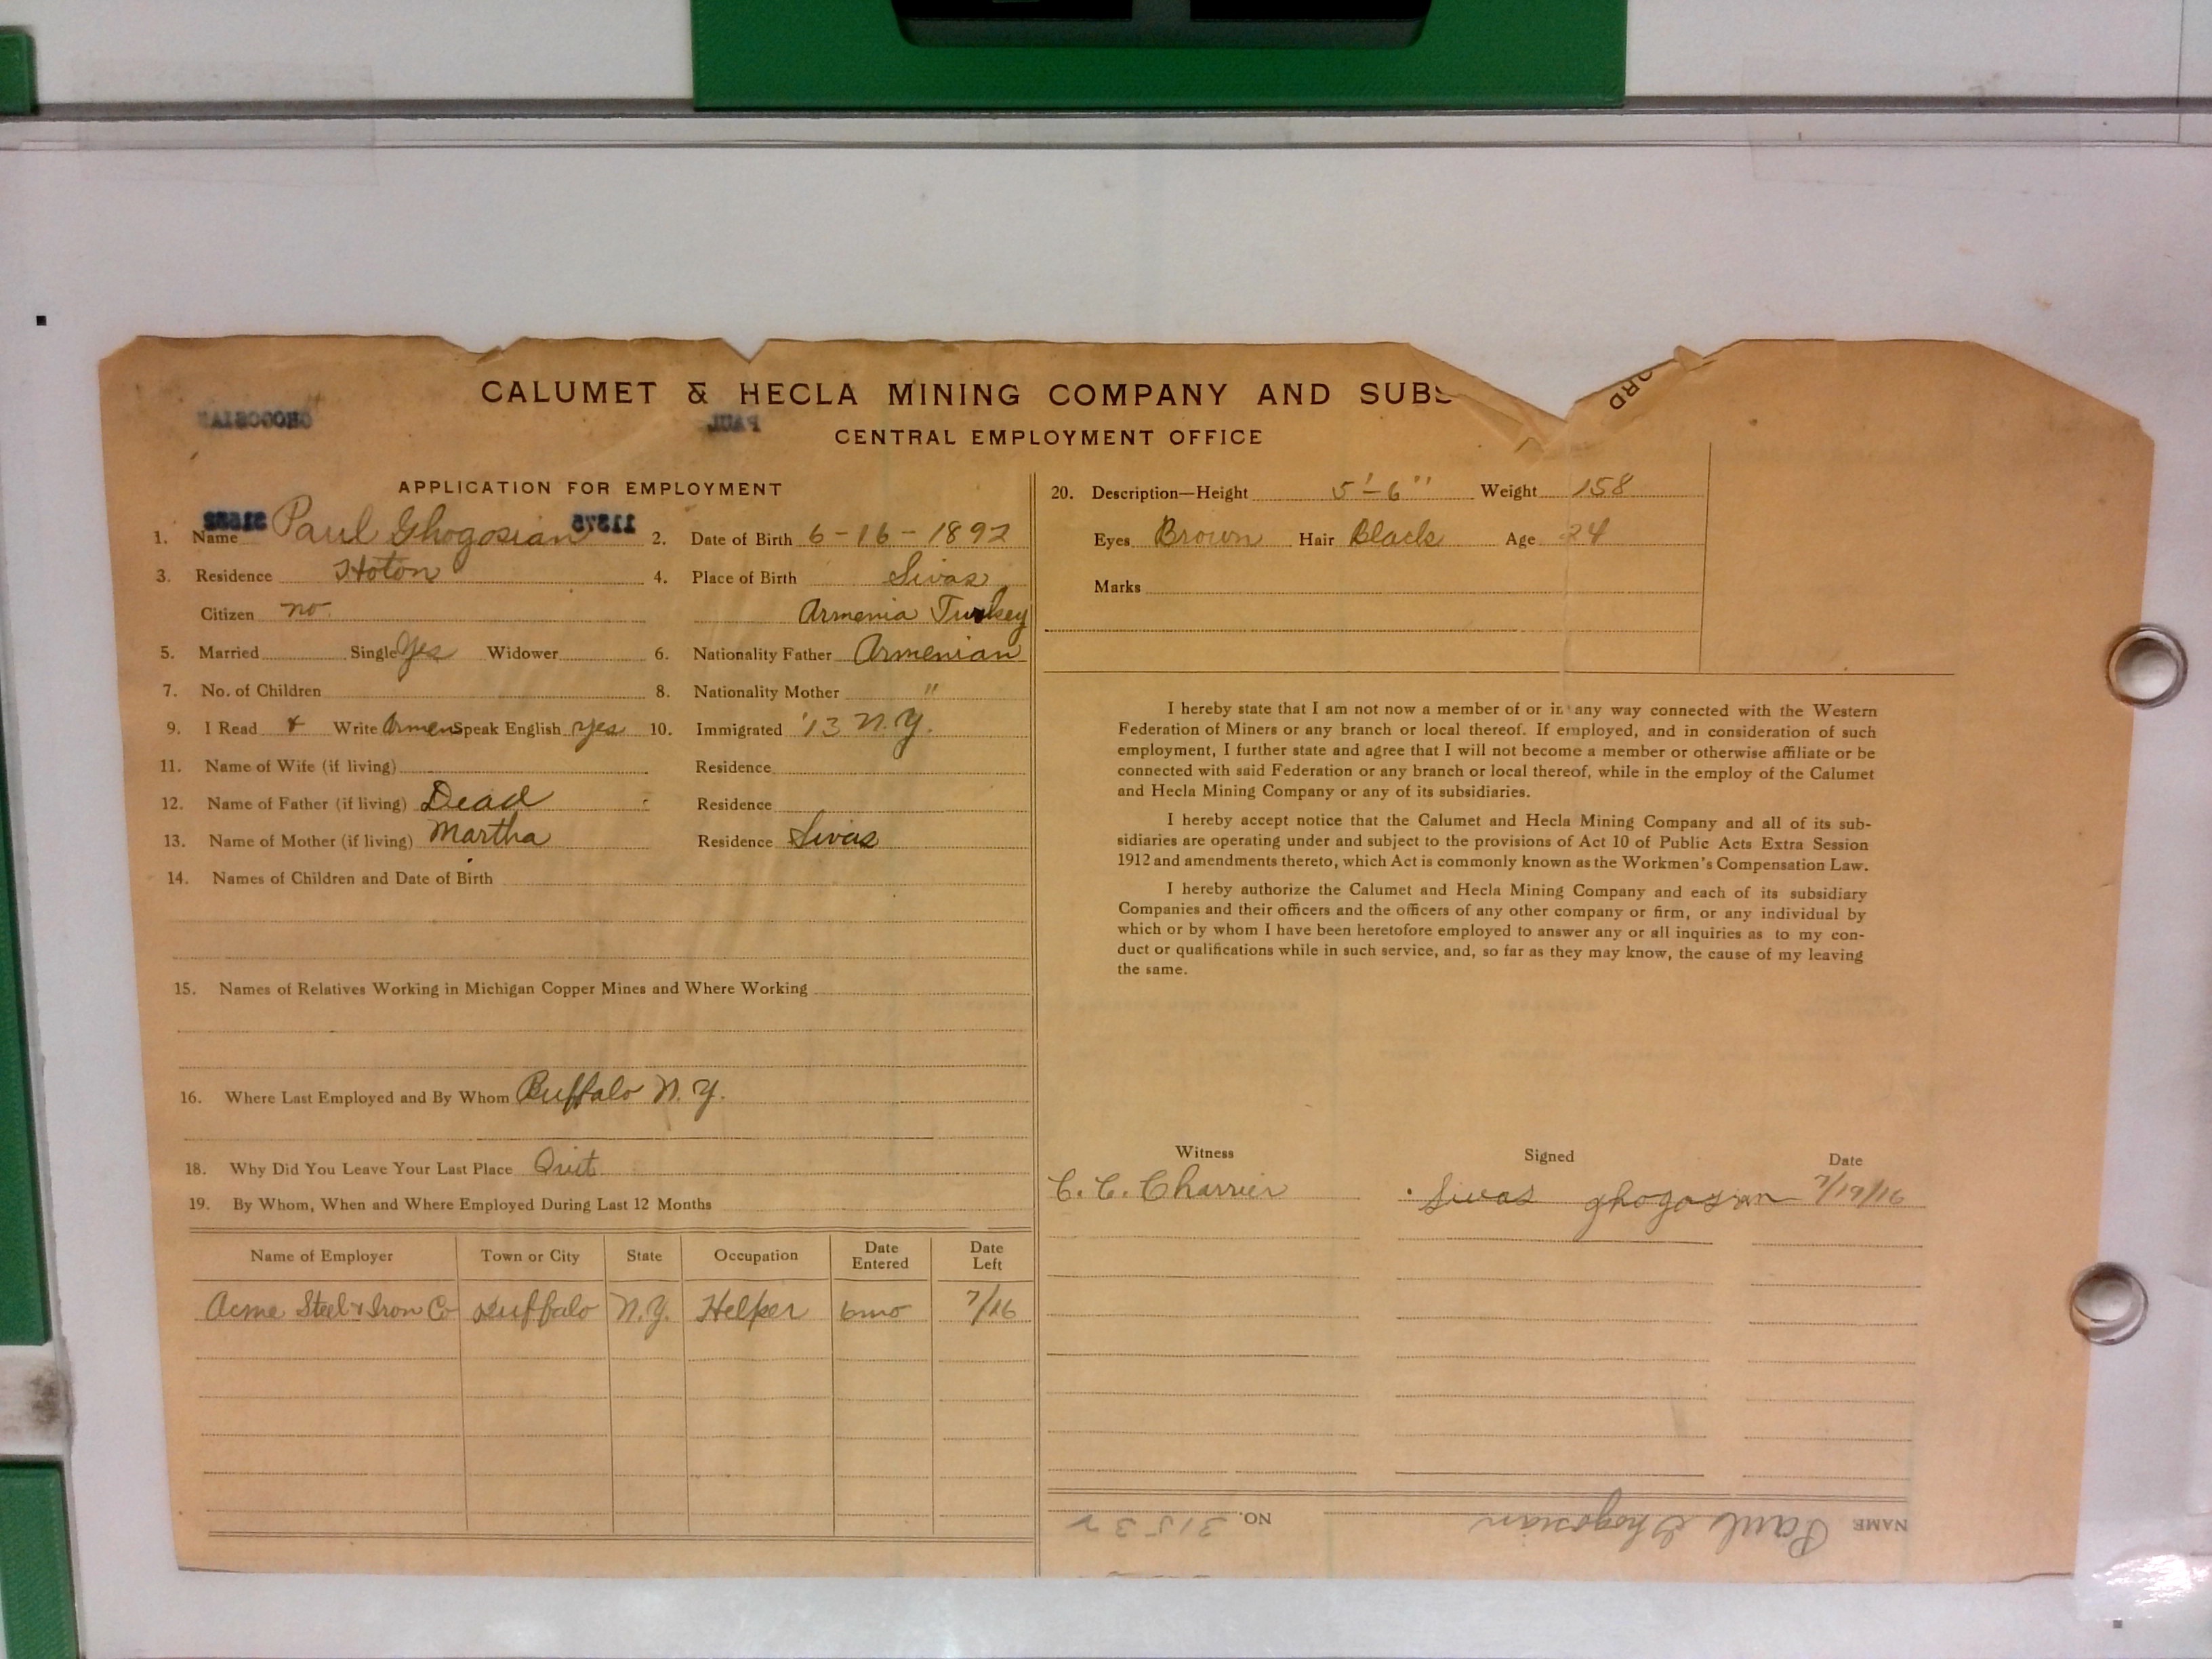 CALUMET & HECLA MINING COMPANY AND SUBS
ORD
GHOGOSIAN PAUL
CENTRAL EMPLOYMENT OFFICE
APPLICATION FOR EMPLOYMENT
11375
1. Name Paul Ghogosian 2. Date of Birth 6-16-1892
3. Residence Hoton 4. Place of Birth Sivas
Citizen no. Armenia Turkey
5. Married Single Yes Widower 6. Nationality Father Armenian
7. No. of Children 8. Nationality Mother "
9. I Read & Write Armen Speak English yes 10. Immigrated '13 N.Y.
11. Name of Wife (if living) Residence
12. Name of Father (if living) Dead Residence
13. Name of Mother (if living) Martha Residence Sivas
14. Names of Children and Date of Birth
15. Names of Relatives Working in Michigan Copper Mines and Where Working
16. Where Last Employed and By Whom Buffalo N.Y.
18. Why Did You Leave Your Last Place Quit
19. By Whom, When and Where Employed During Last 12 Months
Name of Employer Town or City State Occupation Date Entered Date Left
Acme Steel & Iron Co Buffalo N.Y. Helper 6mo 7/16
20. Description—Height 5'-6" Weight 158
Eyes Brown Hair Black Age 24
Marks
I hereby state that I am not now a member of or in any way connected with the Western
Federation of Miners or any branch or local thereof. If employed, and in consideration of such
employment, I further state and agree that I will not become a member or otherwise affiliate or be
connected with said Federation or any branch or local thereof, while in the employ of the Calumet
and Hecla Mining Company or any of its subsidiaries.
I hereby accept notice that the Calumet and Hecla Mining Company and all of its sub-
sidiaries are operating under and subject to the provisions of Act 10 of Public Acts Extra Session
1912 and amendments thereto, which Act is commonly known as the Workmen's Compensation Law.
I hereby authorize the Calumet and Hecla Mining Company and each of its subsidiary
Companies and their officers and the officers of any other company or firm, or any individual by
which or by whom I have been heretofore employed to answer any or all inquiries as to my con-
duct or qualifications while in such service, and, so far as they may know, the cause of my leaving
the same.
Witness Signed Date
C. C. Charrier Sivas ghogosian 7/19/16
NAME Paul Ghogosian NO. 31532